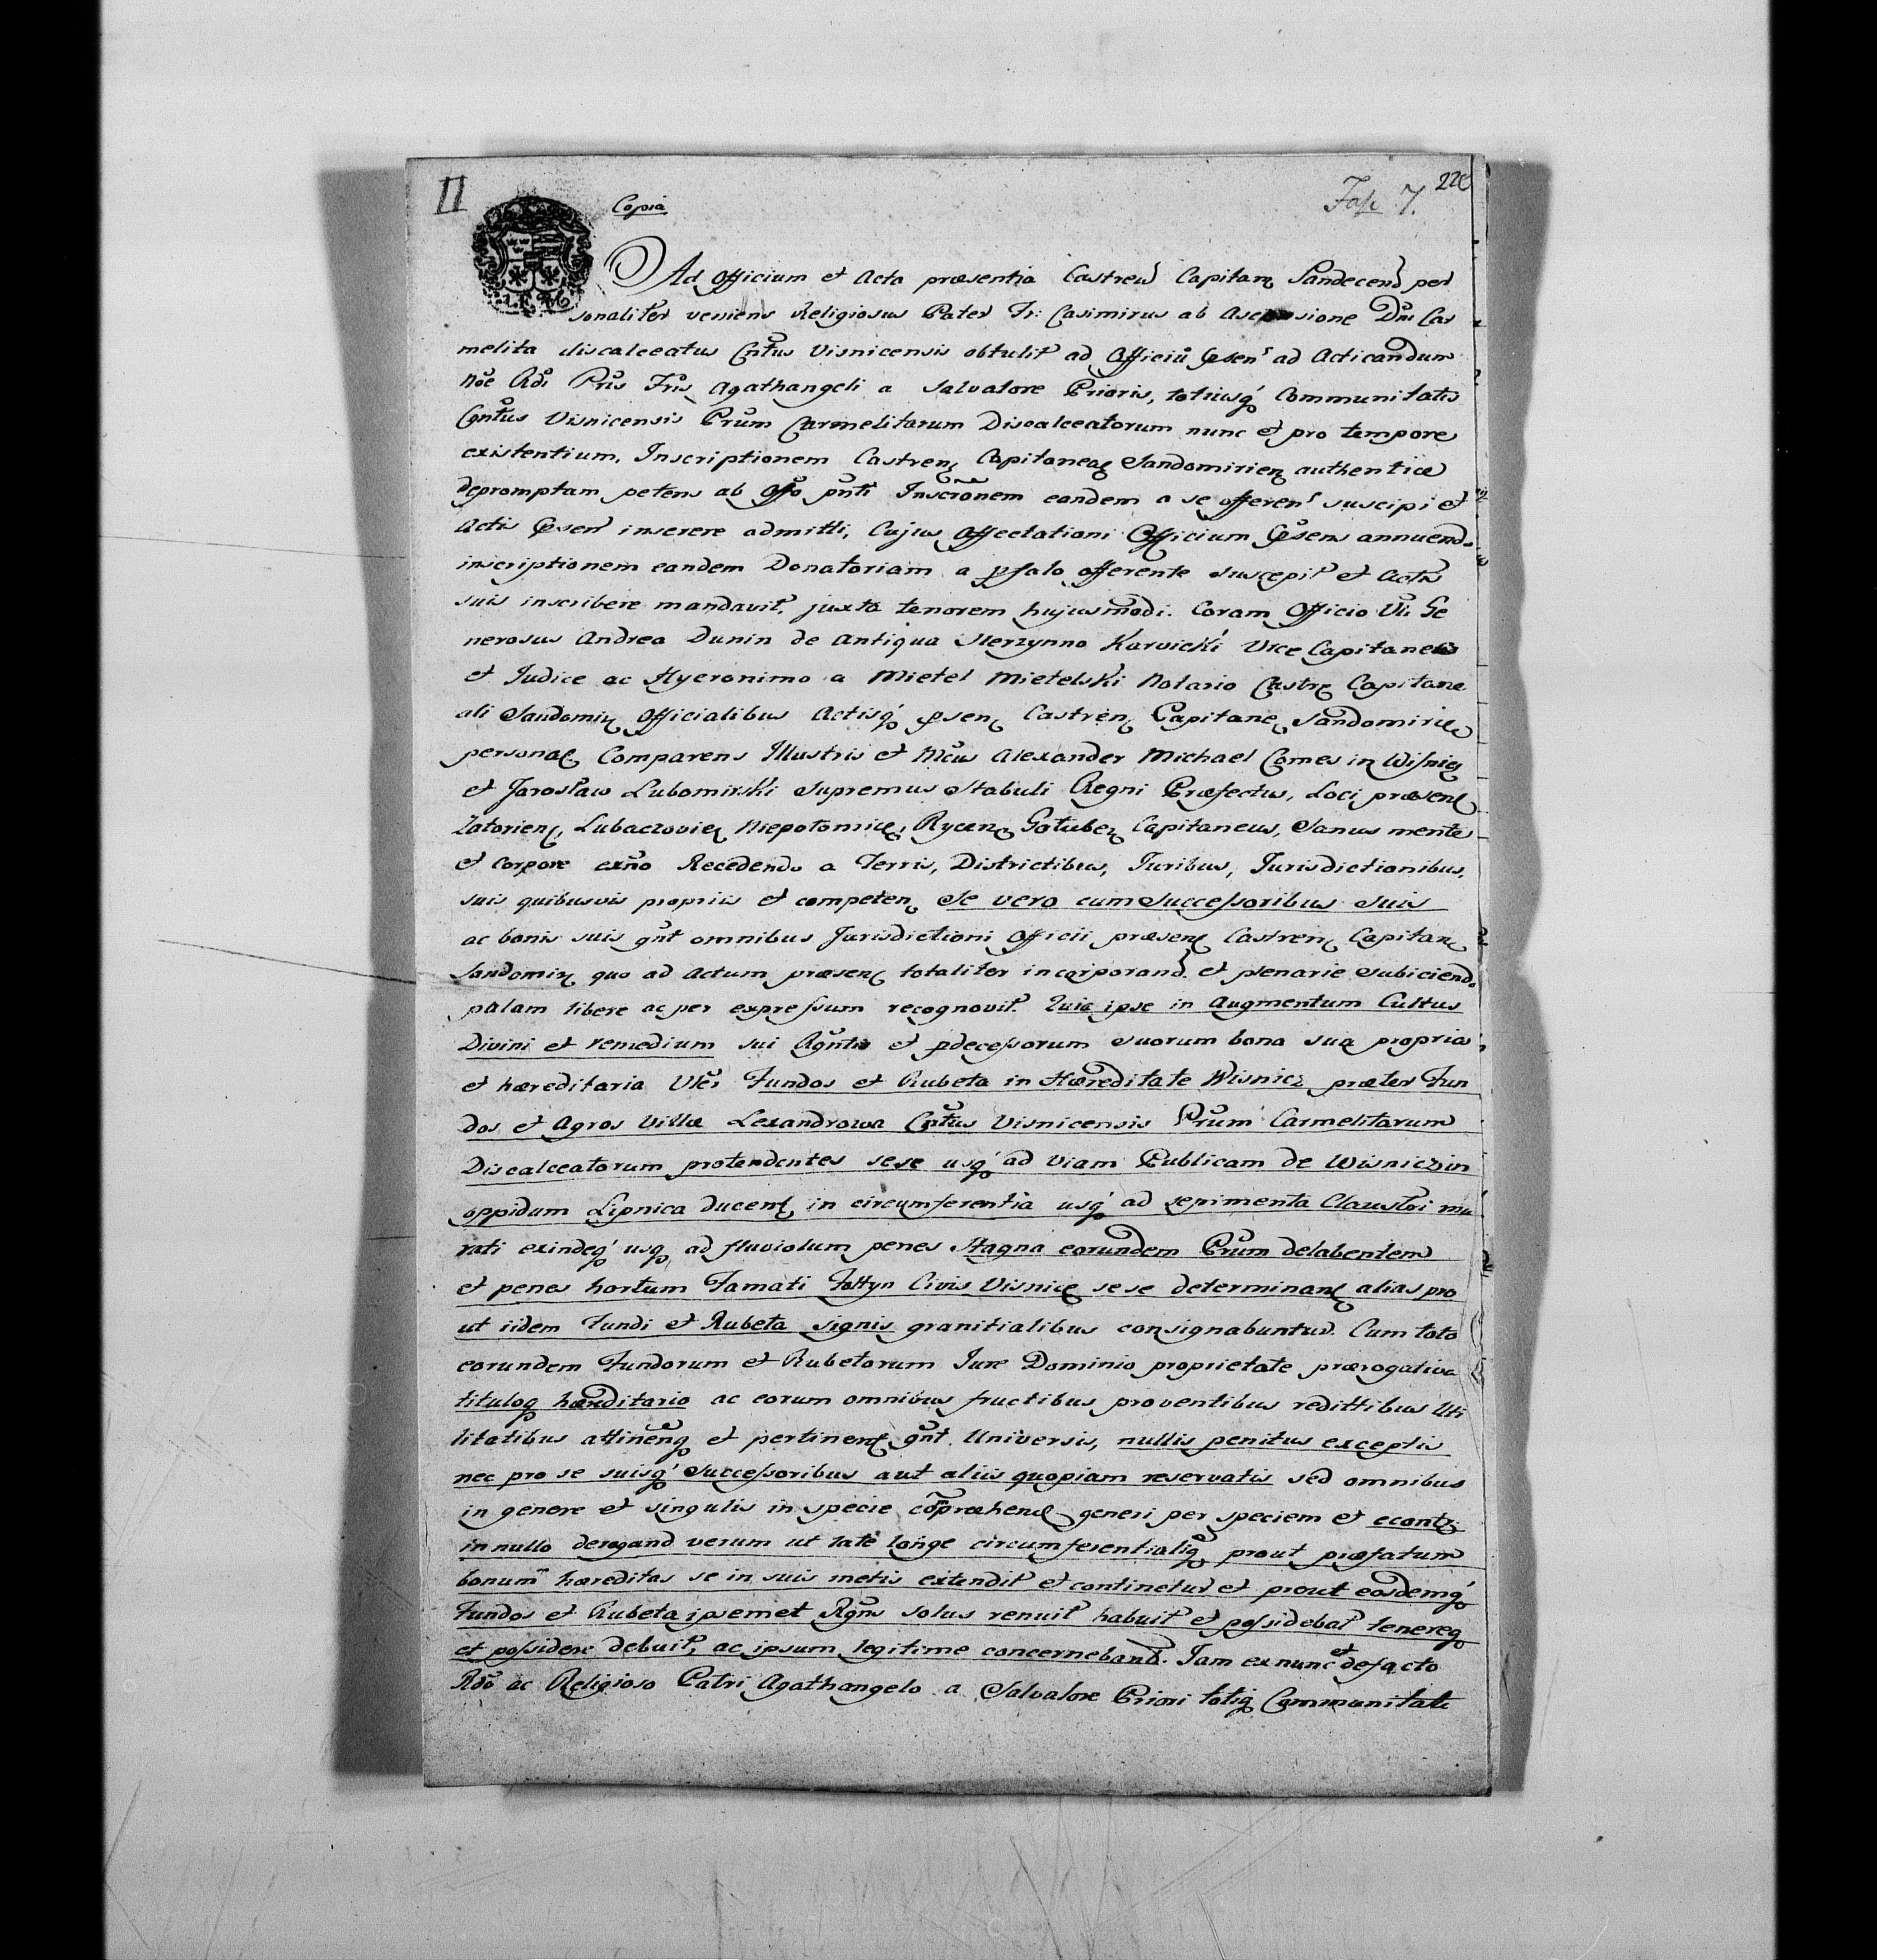 II
Copia
Fasc 7. 220
Ad Officium et Acta præsentia Castren Capitan Sandecens per
sonaliter veniens Religiosus Pater Fr: Casimirus ab Ascensione Dni Car
melita discalceatus Cntus Visnicensis obtulit ad Officiũ Psens ad Acticandum
Nõe Rdi Pris Fris Agathangeli a Salvatore Prioris, totiusq Communitatis
Cgntus Visnicensis Prum Carmelitarum Discalceatorum nunc et pro tempore
existentium, Inscriptionem Castren Capitaneal Sandomirien authentice
depromptam petens ab Offo pnti Inscrõnem eandem a se offeren suscipi et
Actis Psen inserere admitti, Cujus Affectationi Officium Psens annuendo
inscriptionem eandem Donatoriam a pfato offerente suscepit et Actis
suis inscribere mandavit, juxta tenorem hujusmodi. Coram Officio Vti Ge
nerosus Andrea Dunin de Antiqua Skrzynno Karvicki Vice Capitaneo
et Judice ac Hyeronimo a Mietel Mietelski Notario Castr Capitane
ali Sandomir Officialibus Actisq psen Castren Capitane Sandomirie
personal Comparens Illustris et Mcus Alexander Michael Comes in Wisnicz
et Jarosław Lubomirski Supremus Stabuli Regni Præfectus, Loci præsen
Zatorien, Lubaczovien Niepołomic, Rycen, Gołuben Capitaneus, Sanus mente
et Corpore exño Recedendo a Terris, Districtibus, Iuribus, Iurisdictionibus,
suis quibusvis propriis et competen Se vero cum Successoribus Suis
ac bonis suis gnt omnibus Jurisdictioni Officii præsen Castren Capitan
Sandomir quo ad Actum præsen totaliter incorporand. et plenarie Subiciendo
palam libere ac per expressum recognovit. Quia ipse in Augmentum Cultus
Divini et remedium sui Rgntis et pdecessorum suorum bona sua propria
et hæreditaria Vter Fundos et Rubeta in Hæreditate Wisnicz præter Fun
dos et Agros Villæ Lexandrowa Cntus Visnicensis Prum Carmelitarum
Discalceatorum protendentes sese usq ad viam Publicam de Wisnicz in
oppidum Lipnica ducen in circumferentia usq ad sepimenta Claustri mu
rati exindeq usq ad fluviolum penes Stagna eorundem Prum delabentem
et penes hortum Famati Foltyn Civis Visnic sese determinan alias pro
ut iidem Fundi et Rubeta signis granitialibus consignabuntur. Cum toto
eorundem Fundorum et Rubetorum Iure Dominio proprietate prærogativa
tituloq hæreditario ac eorum omnibus fructibus proventibus redittibus Uti
litatibus attinenq et pertinen gnt Universis, nullis penitus exceptis
nec pro se suisq Successoribus aut aliis quopiam reservatis sed omnibus
in genere et singulis in specie cõpræhens generi per speciem et econtr
in nullo derogand verum ut late longe circumferentialiq prout præfatum
bonum hæreditas se in suis metis extendit et continetur et prout eosdemq
Fundos et Rubeta ipsemet Rgns solus renuit habuit et possidebat tenereq
et possidere debuit, ac ipsum legitime concerneband. Iam ex nunc et defacto
Rdo ac Religioso Patri Agathangelo a Salvatore Priori totiq Communitati